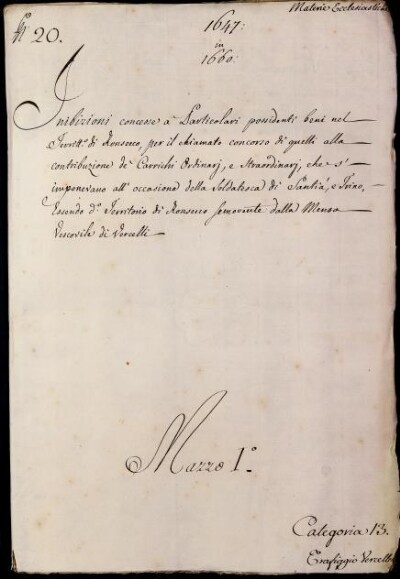 Materie Ecclesiastiche
N.º 20.
1647:
in
1660:
Inibizioni concesse a' Particolari possidenti beni nel
Territº. di Ronsecco, per il chiamato concorso di quelli alla
contribuzione de' Carrichi Ordinarj, e Straordinarj, che s'
imponevano all' occasione della Soldatesca di Santià, e Trino,
Essendo dº. Territorio di Ronsecco semovente dalla Mensa
Vescovile di Vercelli
Mazzo 1.º
Categoria 13.